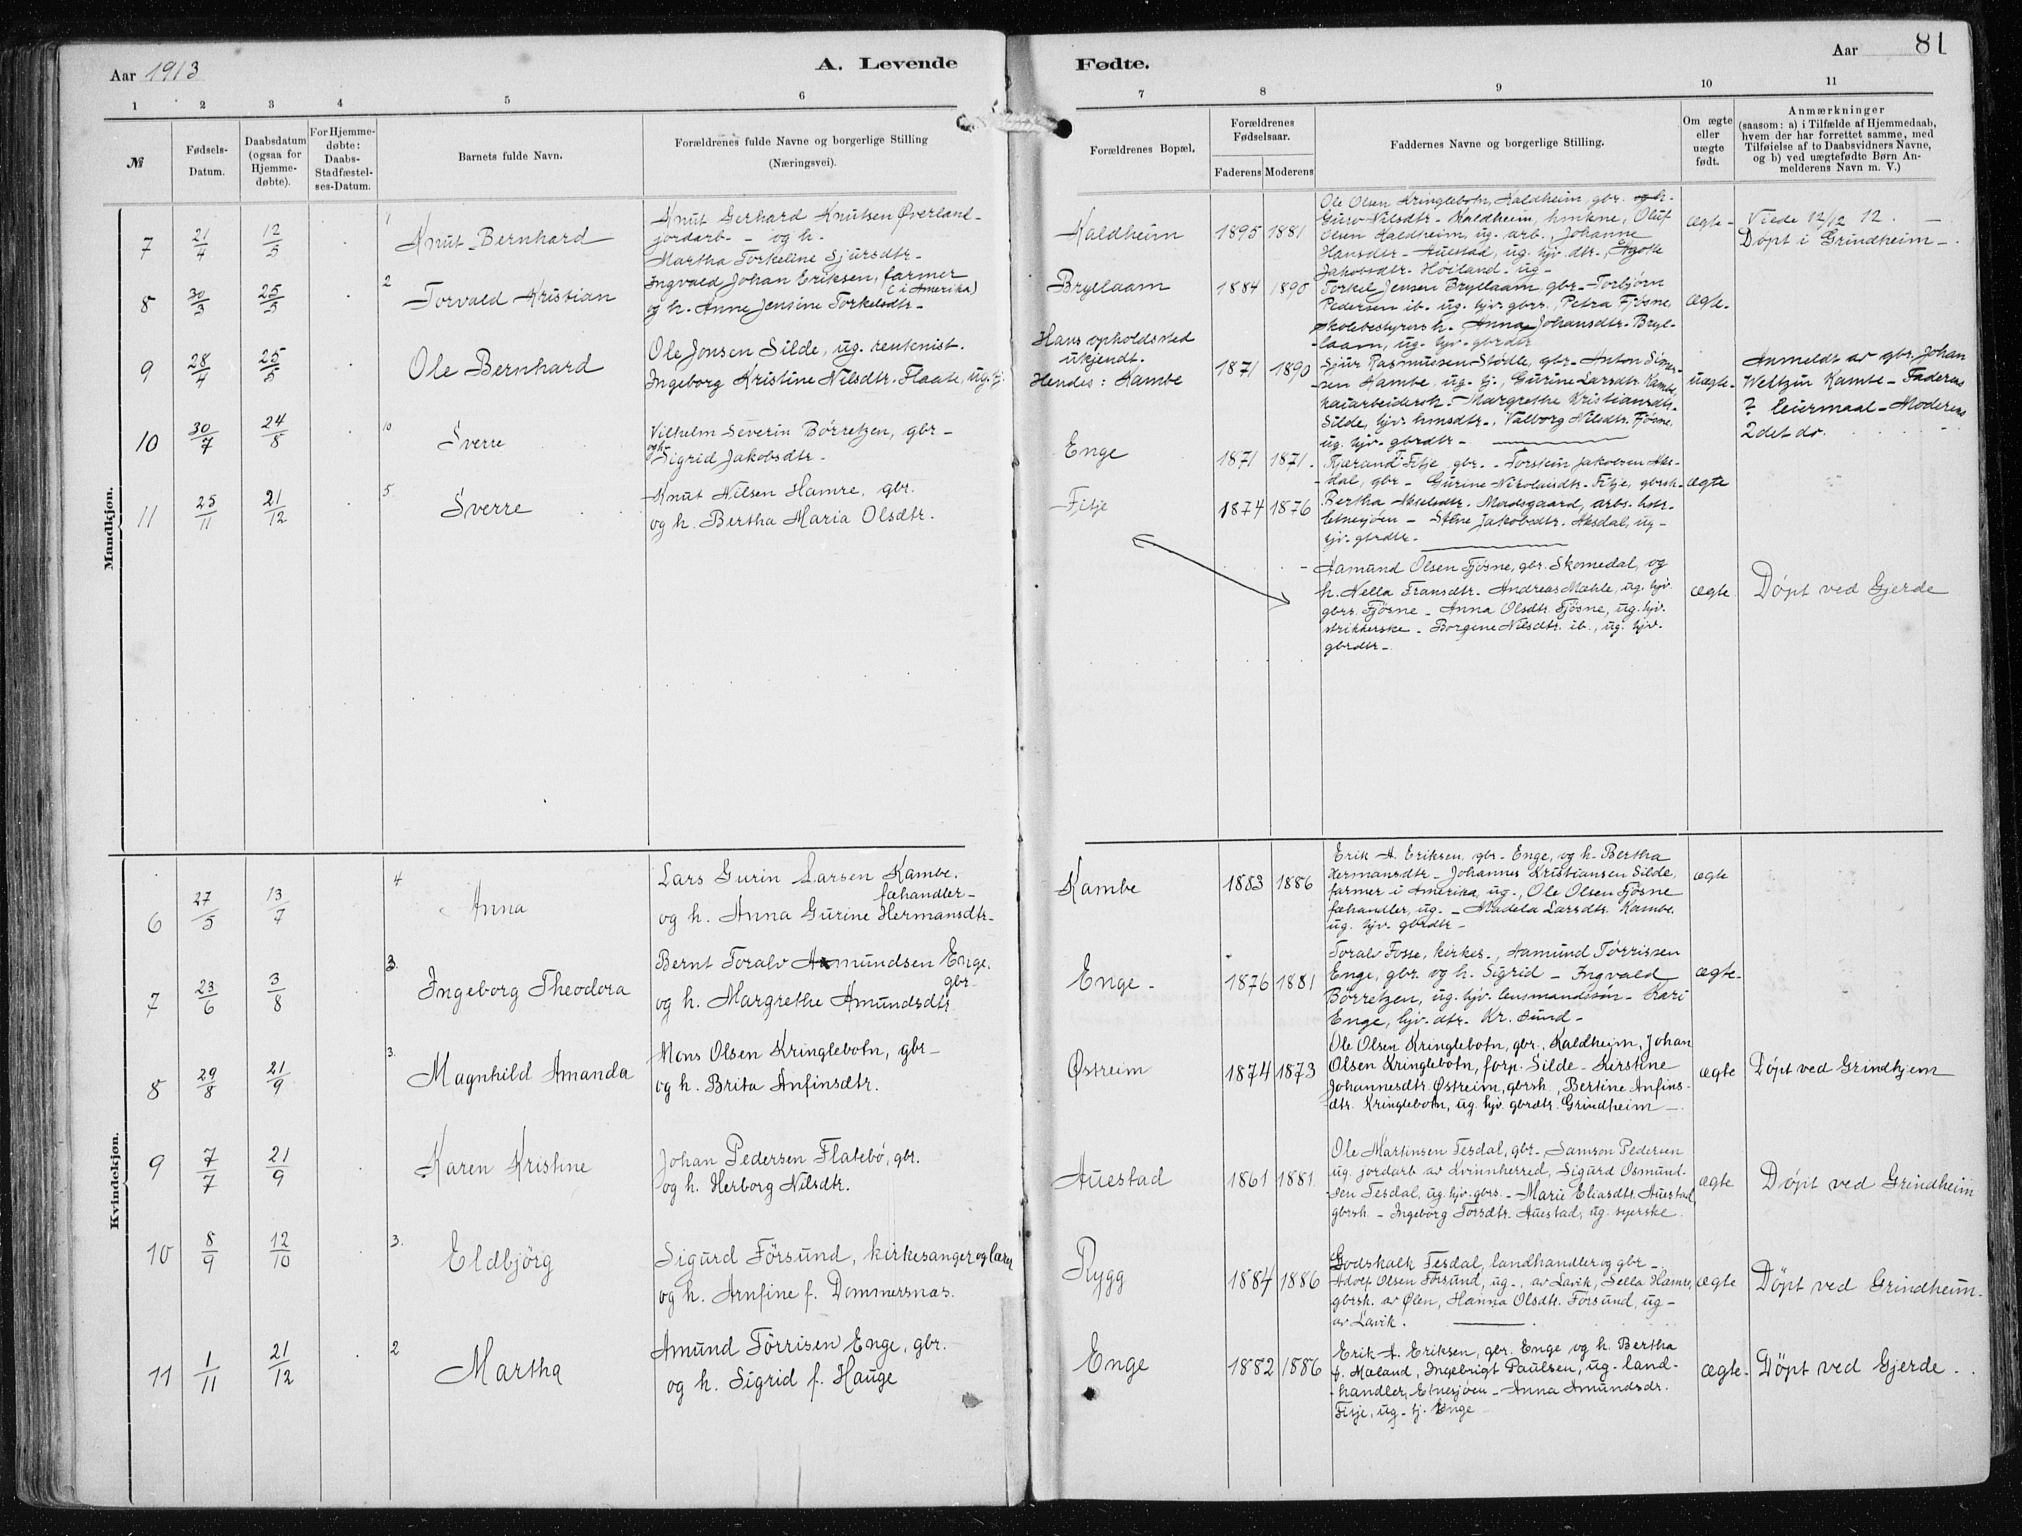 Aar 1913
A. Levende
Fødte.
Aar
81
1 2 3 4 5 6 7 8 9 10 11
№
Fødsels-
Datum.
Daabsdatum
(ogsaa for
Hjemme-
døbte).
For Hjemme-
døbte:
Daabs-
Stadfæstel-
ses-Datum.
Barnets fulde Navn.
Forældrenes fulde Navne og borgerlige Stilling
(Næringsvei).
Forældrenes Bopæl.
Forældrenes
Fødselsaar.
Faderens Moderens
Faddernes Navne og borgerlige Stilling.
Om ægte
eller
uægte
født.
Anmærkninger
(saasom: a) i Tilfælde af Hjemmedaab,
hvem der har forrettet samme, med
Tilføielse af to Daabsvidners Navne,
og b) ved uægtefødte Børn An-
melderens Navn m. V.)
Mandkjøn.
7 21/4 12/5 1 Knut Bernhard
Knut Gerhard Knutsen Øverland -
jordarb. - og h.
Martha Torkeline Sjursdtr -
Kaldheim 1895 1881
Ole Olsen Kringlebotn, Kaldheim, gbr. og h.
Guro Nilsdtr - Kaldheim, hmkne, Oluf
Olsen Kaldheim, ug. arb., Johanne
Hansdtr - Auestad, ug. hjv. dtr., Agote
Jakobsdtr. Höiland - ug -
ægte -
Viede 12/2 12. -
Döpt i Grindheim -
8 30/3 25/5 2 Torvald Kristian
Ingvald Johan Eriksen, farmer
(i Amerika)
og h. Anne Jensine Torkelsdtr -
Bryllaam 1884 1890
Torkel Jensen Bryllaam, gbr - Torbjørn
Pedersen ib. ug. hjv. gbrs., Petra Fjösne,
skolebestyrers h., Anna Johansdtr. Bryl-
laam, ug. hjv. gbrdtr
ægte -
9 28/4 25/5 Ole Bernhard
Ole Jonsen Silde, ug.
Ingeborg Kristine Nilsdtr. Flaate, ug. tj.
Hans opholdssted
ukjendt.
Hendes: Kambe
1871 1890
Sjur Rasmussen Stødle, gbr - Anton Simon-
sen Kambe, ug. tj., Gurine Larsdtr. Kambe,
Margrethe Kristiansdtr.
Silde, hjv. hmsdtr -, Valborg Nilsdtr. Fjösne,
ug. hjv. gbrdtr -
uægte -
Anmeldt av gbr. Johan
Weltzin Kambe - Faderens
? leiermaal - Moderens
2det do.
10 30/7 24/8 10 Sverre
Vilhelm Severin Börretzen, gbr -
og h.
Sigrid Jakobsdtr -
Enge 1871 1871 -
Kjærand Fitje, gbr. - Torstein Jakobsen Aks-
dal, gbr - Gurine Nikolaisdtr. Fitje, gbrsh -
Bertha Akselsdtr. Madsgaard, arbs. hstr.
Etnesjöen - Stine Jakobsdtr. Aksdal, ug -
hjv. gbrdtr. -
ægte
11 25/11 21/12 5 Sverre
Knut Nilsen Hamre, gbr.
og h. Bertha Maria Olsdtr.
Fitje 1874 1876
Aamund Olsen Fjösne, gbr. Skomedal, og
h. Nella Fransdtr - Andreas Mæhle, ug. hjv.
gbrs. Fjösne - Anna Olsdtr. Fjösne, ug. hjv.
strikkerske - Borgene Nilsdtr. ib., ug. hjv.
gbrdtr -
ægte
Döpt ved Gjerde
Kvindekjøn.
6 27/5 13/7 4 Anna
Lars Gurin Larsen Kambe.
fæhandler -
og h. Anna Gurine Hermansdtr -
Kambe 1883 1886
Erik A. Eriksen, gbr - Enge, og h. Bertha
Hermansdtr - Johannes Kristiansen Silde,
farmer i Amerika, ug -, Ole Olsen Fjösne
fæhandler, ug. - Madela Larsdtr. Kambe,
ug. hjv. gbrdtr -
ægte
7 23/6 3/8 3. Ingeborg Theodora
Bernt Toralv Amundsen Enge,
gbr -
og h. Margrethe Amundsdtr.
Enge - 1876 1881
Toralv Fosse, kirkes., Aamund Tørrissen
Enge, gbr. og h. Sigrid - Ingvald
Börretzen, ug. hjv. lensmandssön - Kari
Enge, hjv. dtr. Kr. Sund -
ægte -
8 29/8 21/9 3. Magnhild Amanda
Mons Olsen Kringlebotn, gbr -
og h. Brita Anfinsdtr.
Østreim 1874 1873
Ole Olsen Kringlebotn, gbr., Kaldheim, Johan
Olsen Kringlebotn, forp. Silde - Kirstine
Johannesdtr. Østreim, gbrsh., Bertine Anfins-
dtr. Kringlebotn, ug. hjv. gbrdtr. Grindheim -
ægte
Döpt ved Grindhjem
9 7/7 21/9 Karen Kristine
Johan Pedersen Flatebö, gbr.
og h. Herborg Nilsdtr.
Auestad 1861 1881
Ole Martinsen Tesdal, gbr -, Samson Pedersen
ug. jordarb av Kvinnherred, Sigurd Osmund-
sen Tesdal, ug. hjv. gbrs. - Marie Eliasdtr. Auestad
gbrsh. - Ingeborg Torsdtr. Auestad, ug. syerske.
ægte
Döpt ved Grindheim
10 8/9 12/10 3. Eldbjörg
Sigurd Försund, kirkesanger og lærer
og h. Arnfine f. Dommersnæs.
Rygg 1884 1886
Godskalk Tesdal, landhandler og gbr -.
Adolf Olsen Försund, ug -, av Lavik, Sella Hamre,
gbrsh. av Ølen, Hanna Olsdtr. Försund, ug -
av Lavik.
ægte
Döpt ved Grindheim -
11 1/11 21/12 2 Martha
Amund Törrisen Enge, gbr.
og h. Sigrid f. Hauge
Enge 1882 1886
Erik A. Eriksen, gbr. Enge og h. Bertha
f. Mæland, Ingebrigt Paulsen, ug. land-
handler, Etnesjöen - Anna Amundsdtr.
Fitje, ug. tj. Enge
ægte -
Döpt ved Gjerde -